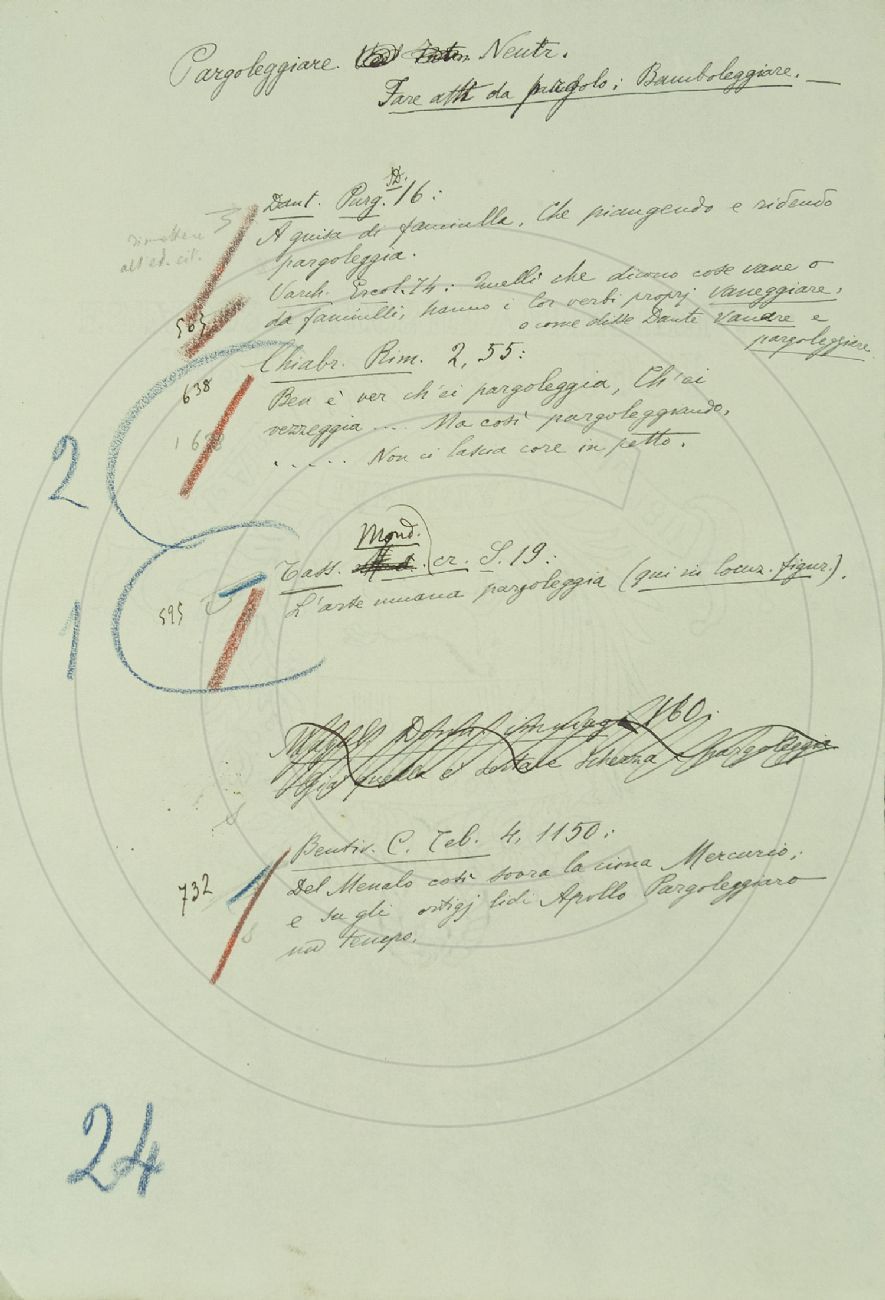 Pargoleggiare. Neutr.
Fare atti da pargolo; Bamboleggiare. —
D.
Dant. Purg. 16:
A guisa di fanciulla, Che piangendo e ridendo
pargoleggia.
rimettere
all'ed. cit.
3
Varch. Ercol. 74: Quelli che dicono cose vane o
da fanciulli, hanno i lor verbi proprj vaneggiare,
o come disse Dante vanare e
pargoleggiare.
565
Chiabr. Rim. 2, 55:
638
Ben è ver ch'ei pargoleggia, Ch'ei
vezzeggia .... Ma così pargoleggiando,
1 638
. . . . . Non ci lascia core in petto.
2
Mond.
Tass. cr. S. 19:
L'arte umana pargoleggia (qui in locuz. figur.).
595
1
160:
Già quella è Scherza pargoleggia
Bentiv. C. Teb. 4, 1150:
732
Del Menalo così sovra la cima Mercurio;
e su gli ortigj lidi Apollo Pargoleggiaro
un tempo.
24